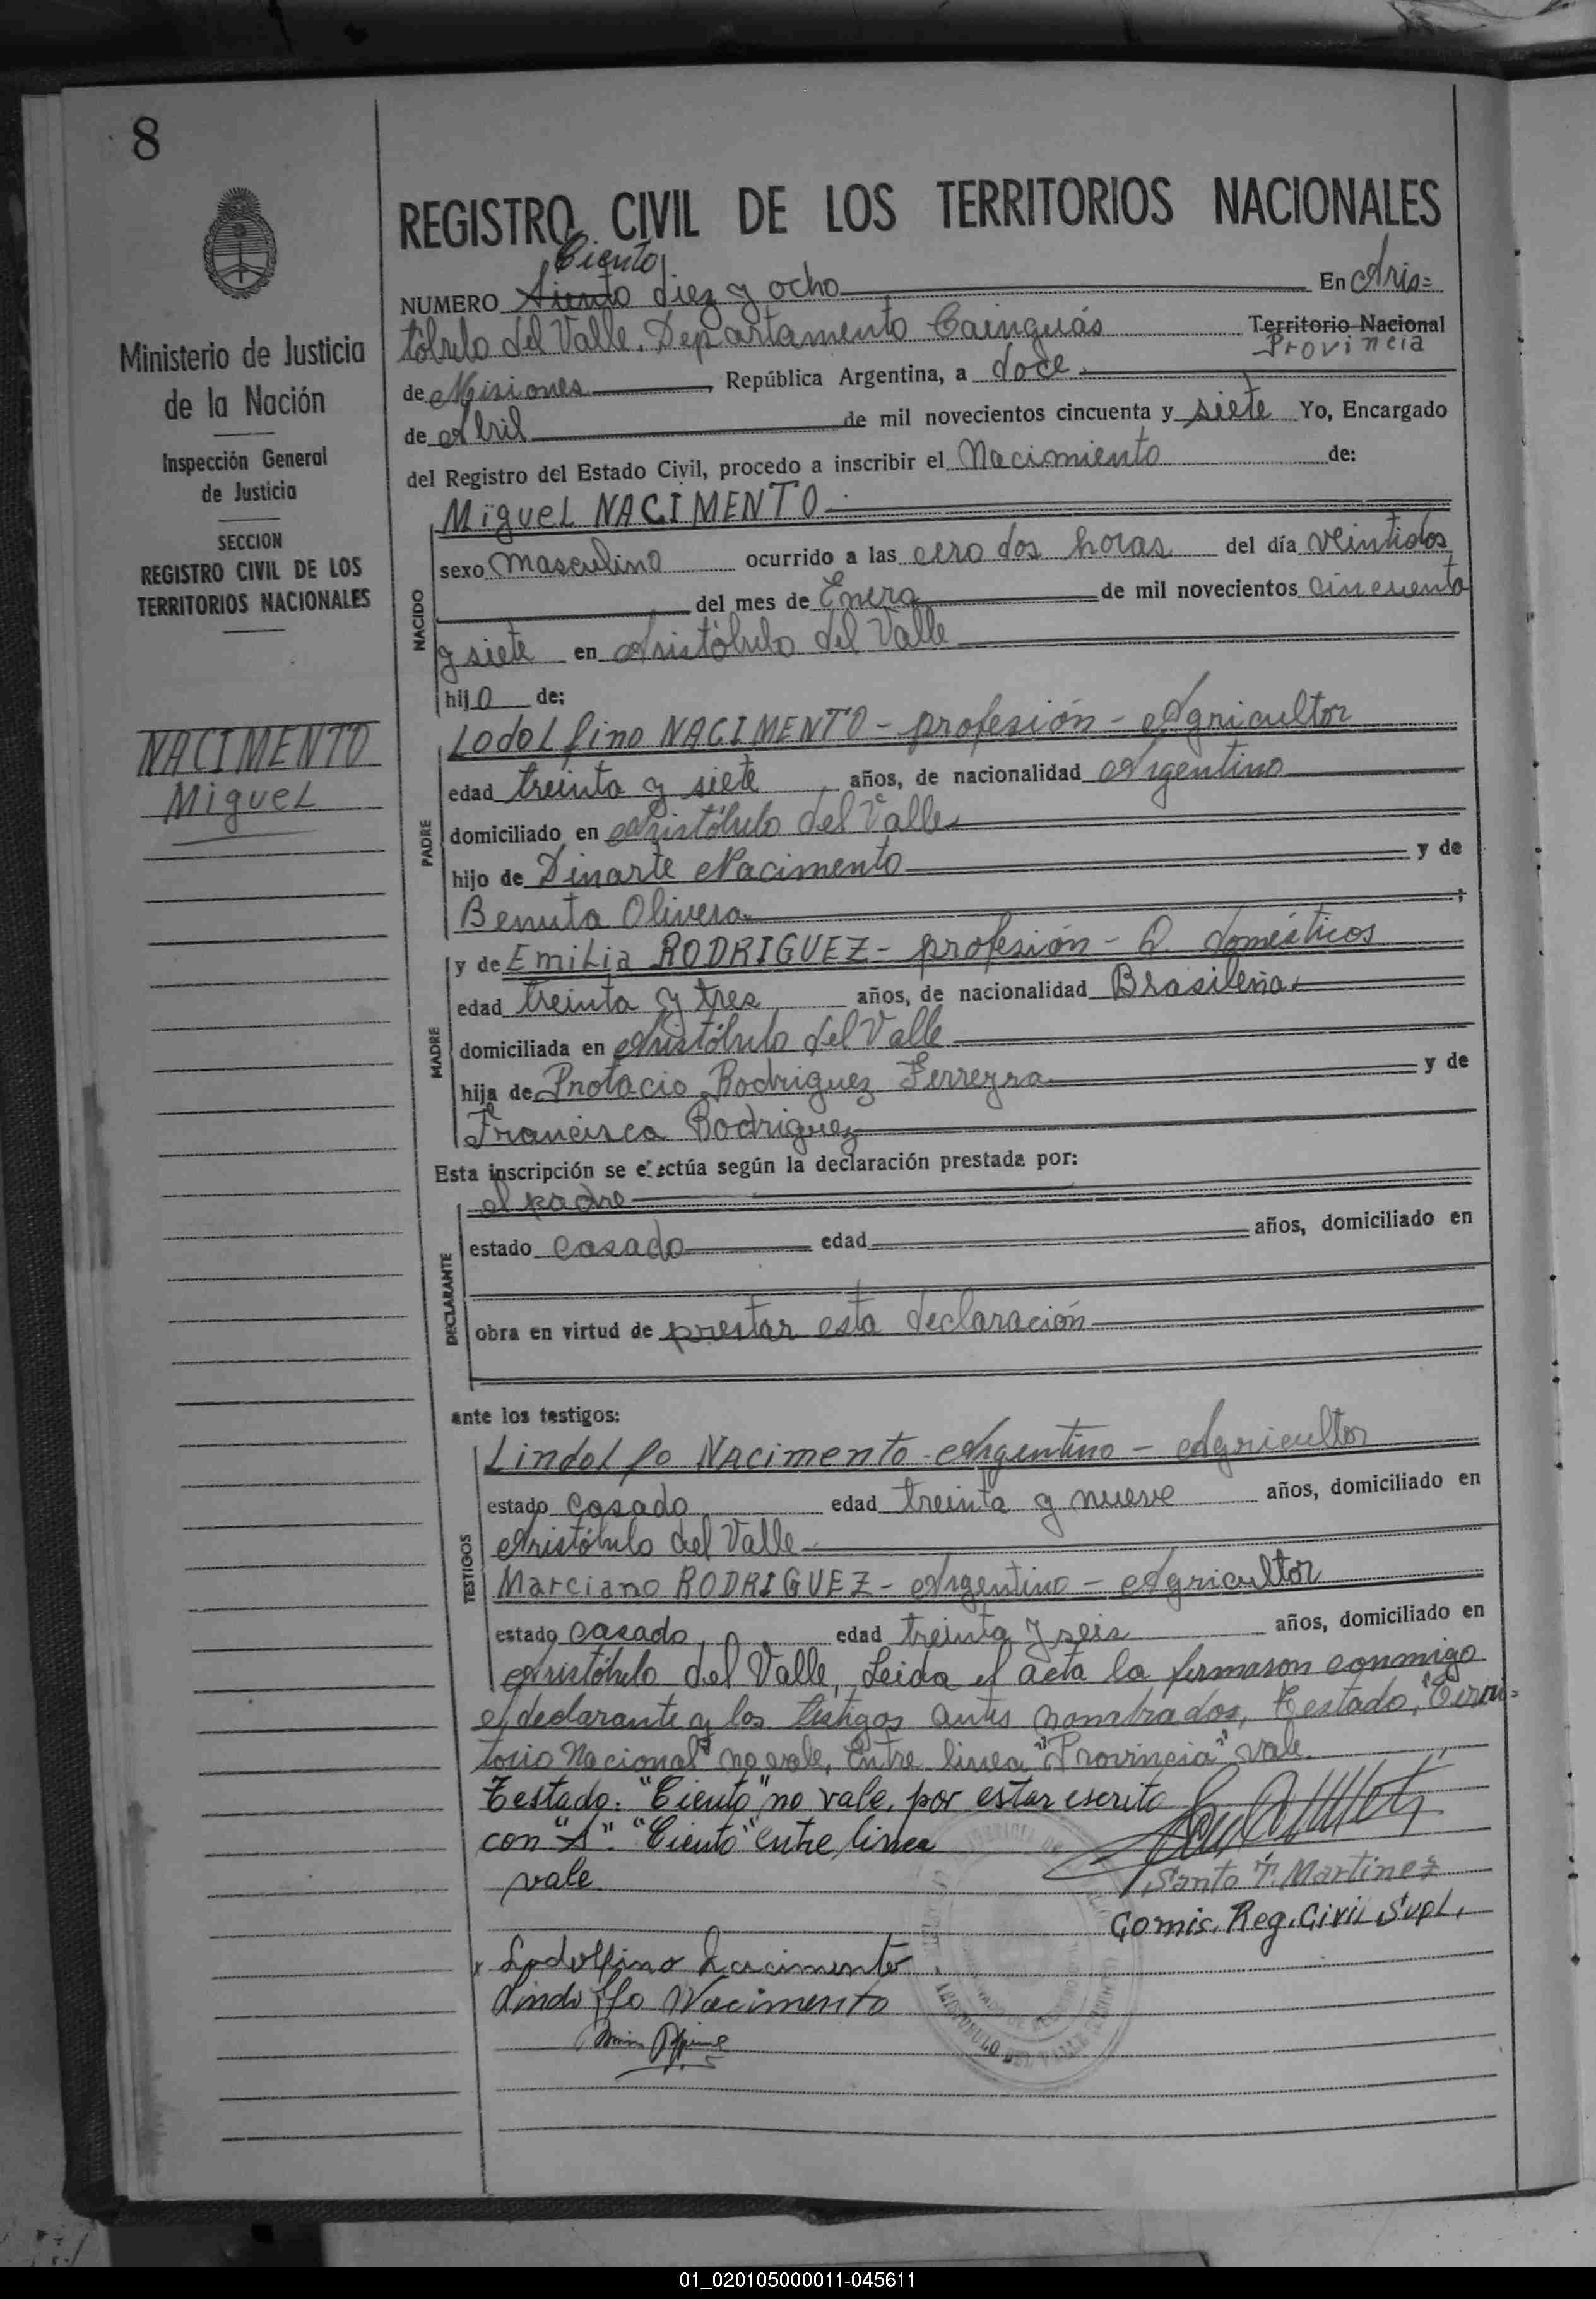 8
REGISTRO CIVIL DE LOS TERRITORIOS NACIONALES
Ciento
NUMERO Siento diez y ocho En Aris=
tóbulo del Valle. Departamento Cainguás Territorio Nacional
Provincia
de Misiones, República Argentina, a doce
de Abril de mil novecientos cincuenta y siete Yo, Encargado
del Registro del Estado Civil, procedo a inscribir el Nacimiento de:
Ministerio de Justicia
de la Nación
Inspección General
de Justicia
SECCION
REGISTRO CIVIL DE LOS
TERRITORIOS NACIONALES
NACIMENTO
Miguel
NACIDO
Miguel NACIMENTO
sexo masculino ocurrido a las cero dos horas del día veintidos
del mes de Enero de mil novecientos cincuenta
y siete en Aristóbulo del Valle
hijo de:
PADRE
Lodolfino NACIMENTO - profesión - Agricultor
edad treinta y siete años, de nacionalidad Argentino
domiciliado en Aristóbulo del Valle
hijo de Dinarte Nacimento y de
Benuta Olivera ;
MADRE
y de Emilia RODRIGUEZ - profesión - Q. domésticos
edad treinta y tres años, de nacionalidad Brasileña
domiciliada en Aristóbulo del Valle
hija de Protacio Rodriguez Ferreyra y de
Francisca Rodriguez
Esta inscripción se efectúa según la declaración prestada por:
DECLARANTE
el padre
estado casado edad años, domiciliado en
obra en virtud de prestar esta declaración
ante los testigos:
TESTIGOS
Lindolfo Nacimento - Argentino - Agricultor
estado casado edad treinta y nueve años, domiciliado en
Aristóbulo del Valle
Marciano RODRIGUEZ - Argentino - Agricultor
estado casado, edad treinta y seis años, domiciliado en
Aristóbulo del Valle, Leida el acta la firmaron conmigo
el declarante y los testigos antes nombrados, Testado, "Terri-
torio Nacional" no vale, Entre linea "Provincia" vale.
Testado: "Ciento" no vale, por estar escrito
con "S". "Ciento" entre linea
vale
Santo T. Martinez
Comis. Reg. Civil Supl.
x Lodolfino Nacimento
Lindolfo Nacimento
ARISTOBULO DEL VALLE
01_020105000011-045611